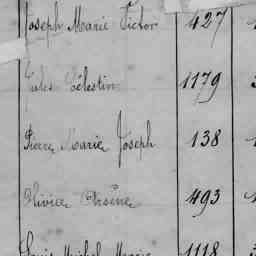 Joseph Marie Victor 427
Jules Célestin 1179
Pierre Marie Joseph 138
Olivier Arsène 493
Louis Michel Marie 1118